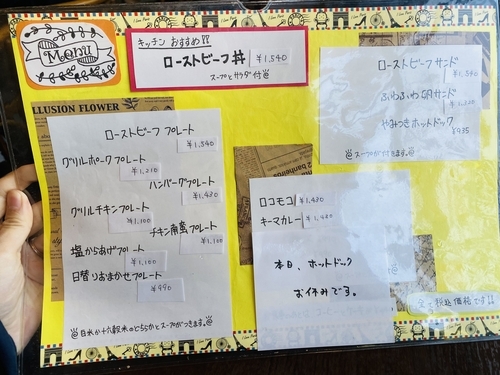 Menu
キッチン おすすめ!!
ローストビーフ丼 ¥1,540
スープとサラダ付
ILLUSION FLOWER
ローストビーフ プレート
¥1,540
グリルポーク プレート
¥1,210
ハンバーグプレート
¥1,480
グリルチキンプレート
¥1,100
チキン南蛮プレート
¥1,100
塩からあげプレート
¥1,100
日替りおまかせプレート
¥990
白米か十六穀米のどちらかとスープがつきます。
ローストビーフ サンド
¥1,540
ふわふわ卵サンド
やみつきホットドック
¥935
スープが付きます。
ロコモコ ¥1,480
キーマカレー ¥1,480
本日、ホットドック
お休みです。
全て税込価格です!!